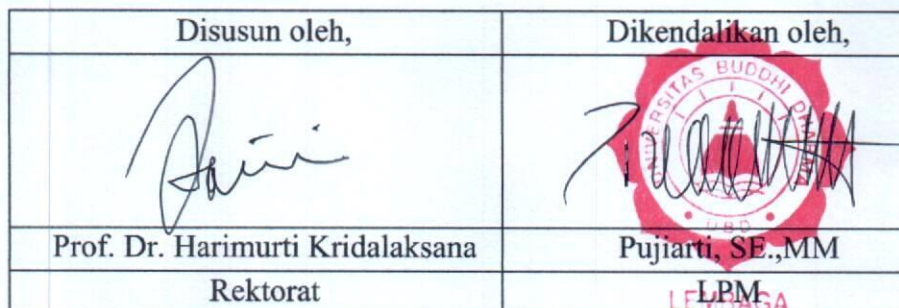 Disusun oleh,
Dikendalikan oleh,
UNIVERSITAS BUDDHI DHARMA
UBD
Prof. Dr. Harimurti Kridalaksana
Pujiarti, SE.,MM
Rektorat
LPM
LEMBAGA